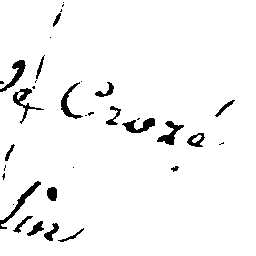 et Crozé
lin